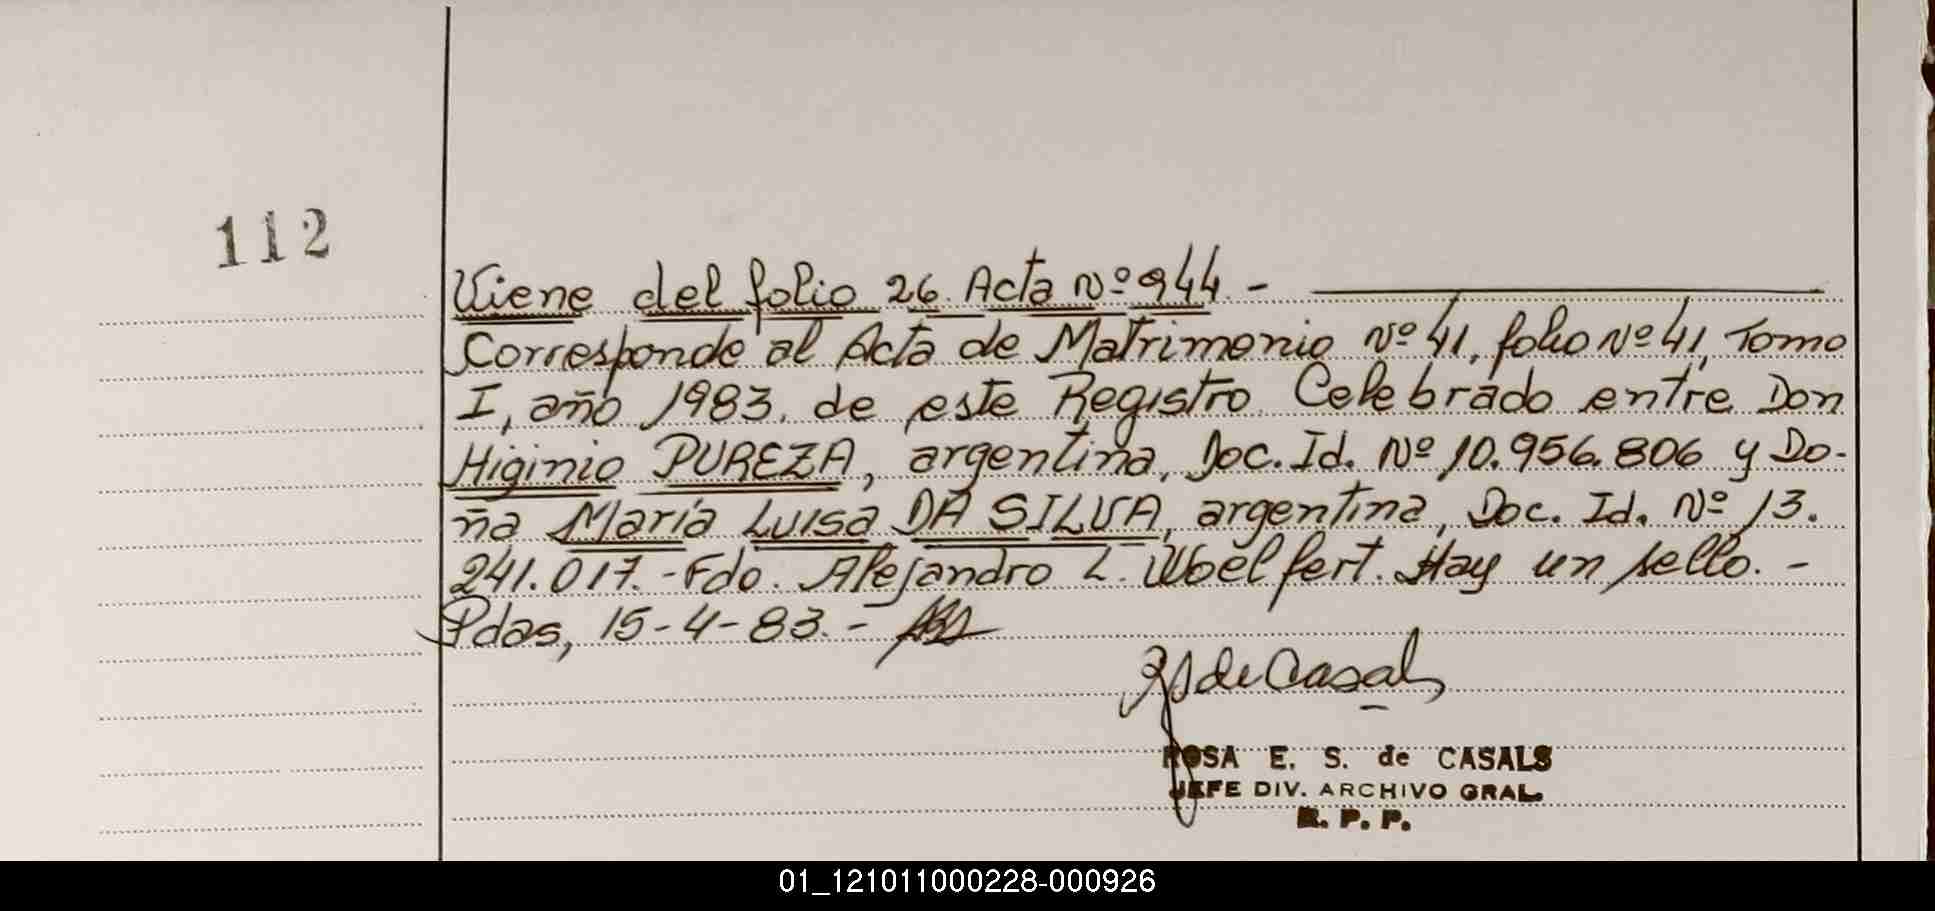 112
Viene del folio 26. Acta Nº 944. -
Corresponde al Acta de Matrimonio Nº 41, folio Nº 41, Tomo
I, año 1983. de este Registro. Celebrado entre Don
Higinio PUREZA, argentina, Doc. Id. Nº 10.956.806 y Do-
ña María Luisa DA SILVA, argentina, Doc. Id. Nº 13.
241.017. - Fdo. Alejandro L. Woelfert. Hay un sello. -
Pdas, 15-4-83. -
RS de Casals
ROSA E. S. de CASALS
JEFE DIV. ARCHIVO GRAL.
R. P. P.
01_121011000228-000926